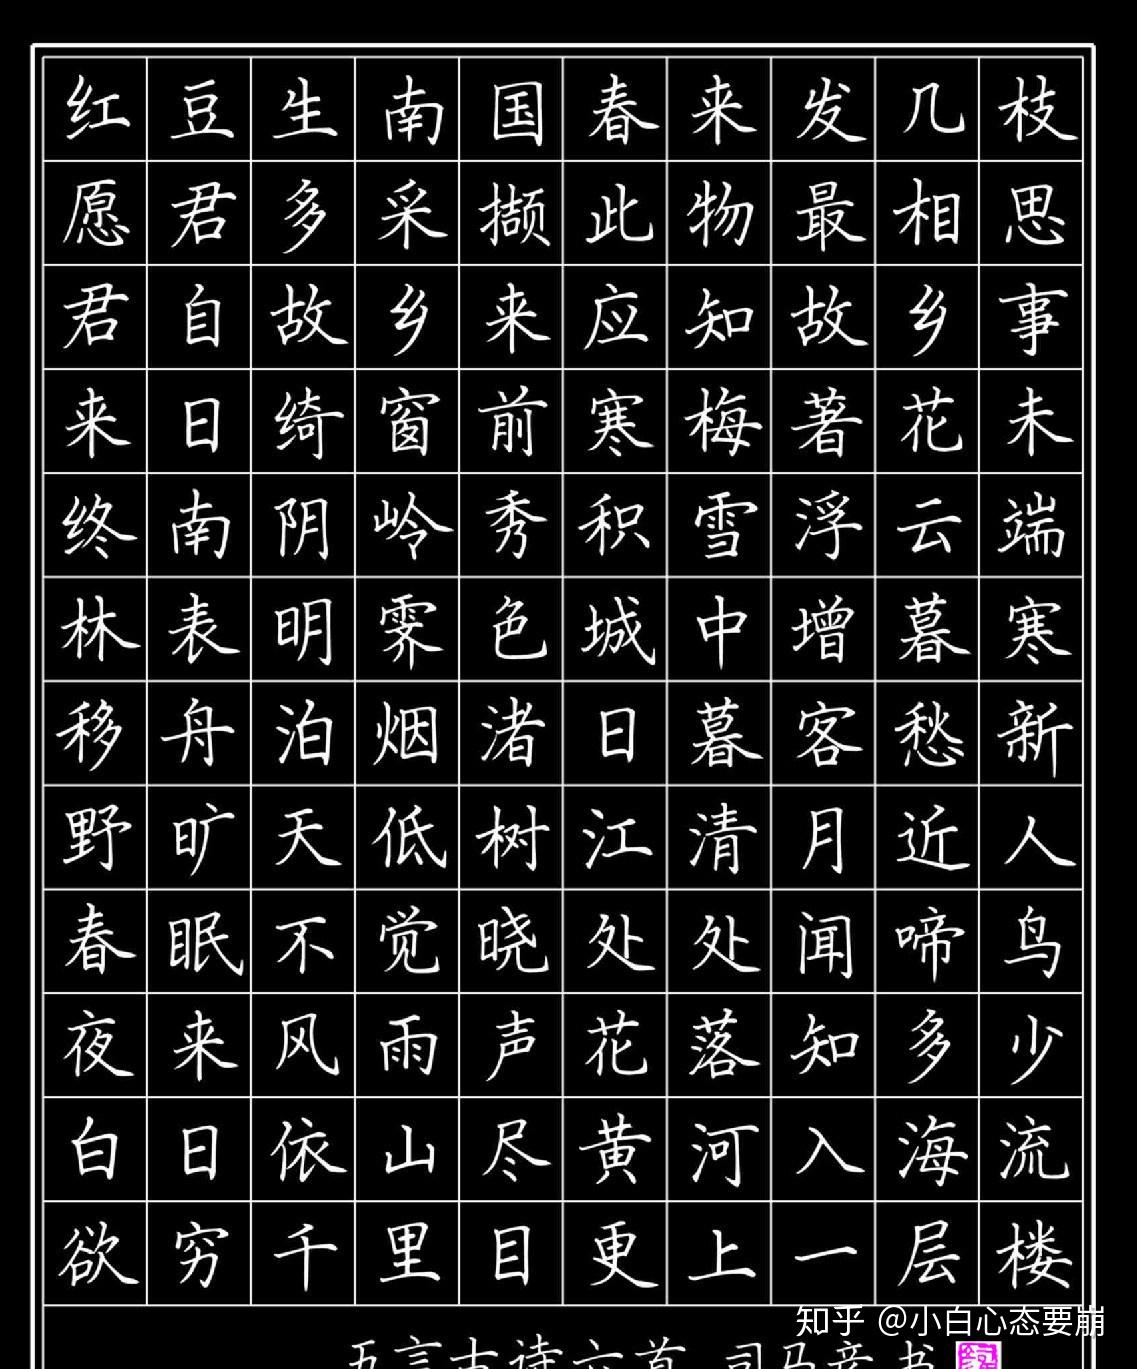 红豆生南国春来发几枝
愿君多采撷此物最相思
君自故乡来应知故乡事
来日绮窗前寒梅著花未
终南阴岭秀积雪浮云端
林表明霁色城中增暮寒
移舟泊烟渚日暮客愁新
野旷天低树江清月近人
春眠不觉晓处处闻啼鸟
夜来风雨声花落知多少
白日依山尽黄河入海流
欲穷千里目更上一层楼
五言古诗六首 司马彦书
知乎 @小白心态要崩